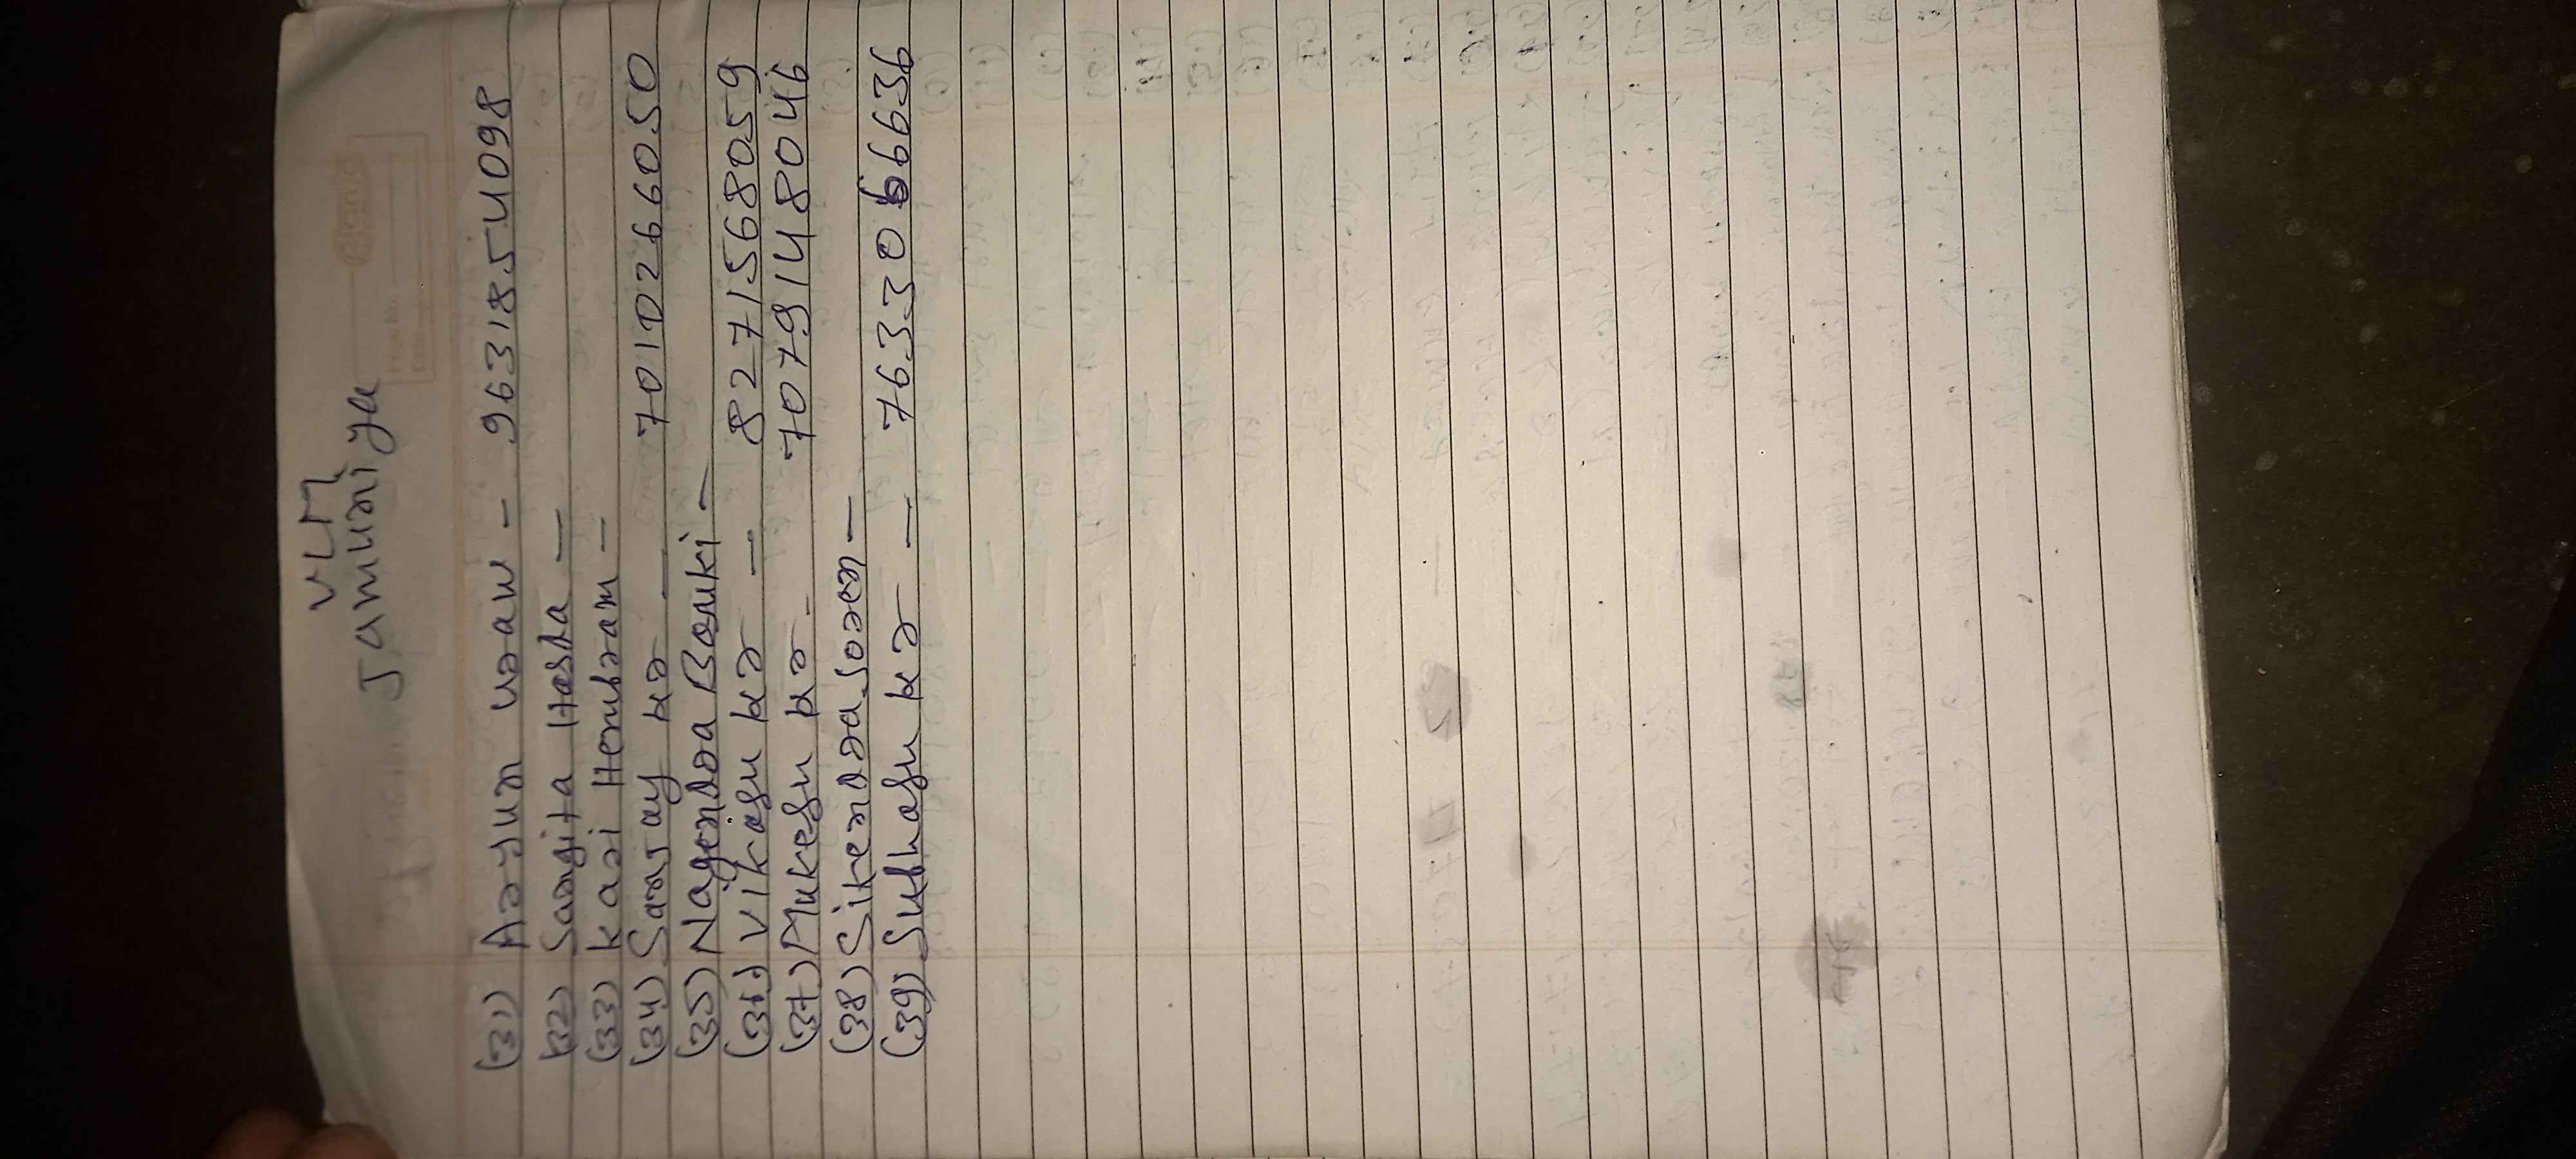 VLM
Jamuniya
(31) Arjun uraw - 9631854098
(32) Sangita Hasda -
(33) Kari Hembram -
(34) Sanjay kr - 7010266050
(35) Nagendra Baski -
(36) Vikash kr - 8271568059
(37) Mukesh kr - 7079148046
(38) Sikendra Soren -
(39) Subhash kr - 7633066636